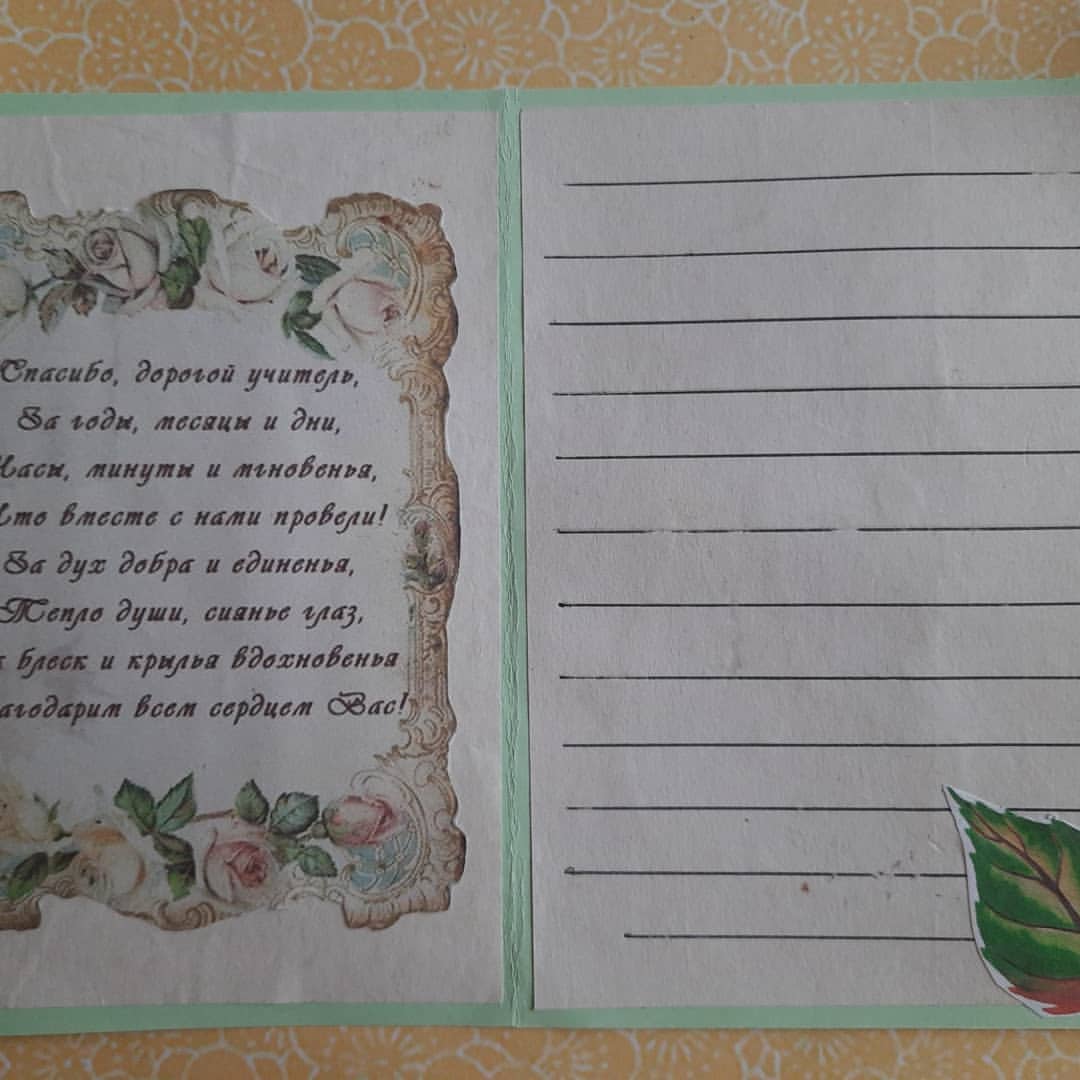 Спасибо, дорогой учитель,
За годы, месяцы и дни,
Часы, минуты и мгновенья,
Что вместе с нами провели!
За дух добра и единенья,
Тепло души, сиянье глаз,
блеск и крылья вдохновенья
Благодарим всем сердцем Вас!